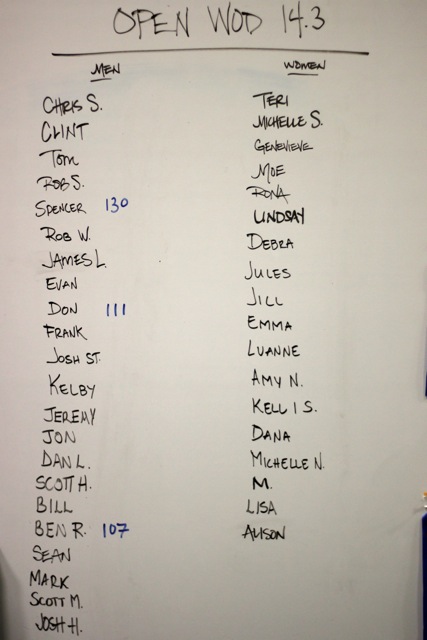 OPEN WOD 14.3
MEN
CHRIS S.
CLINT
TOM
ROB S.
SPENCER 130
ROB W.
JAMES L.
EVAN
DON 111
FRANK
JOSH ST.
KELBY
JEREMY
JON
DAN L.
SCOTT H.
BILL
BEN R. 107
SEAN
MARK
SCOTT M.
JOSH H.
WOMEN
TERI
MICHELLE S.
GENEVIEVE
MOE
RONA
LINDSAY
DEBRA
JULES
JILL
EMMA
LUANNE
AMY N.
KELLI S.
DANA
MICHELLE N.
M.
LISA
ALISON